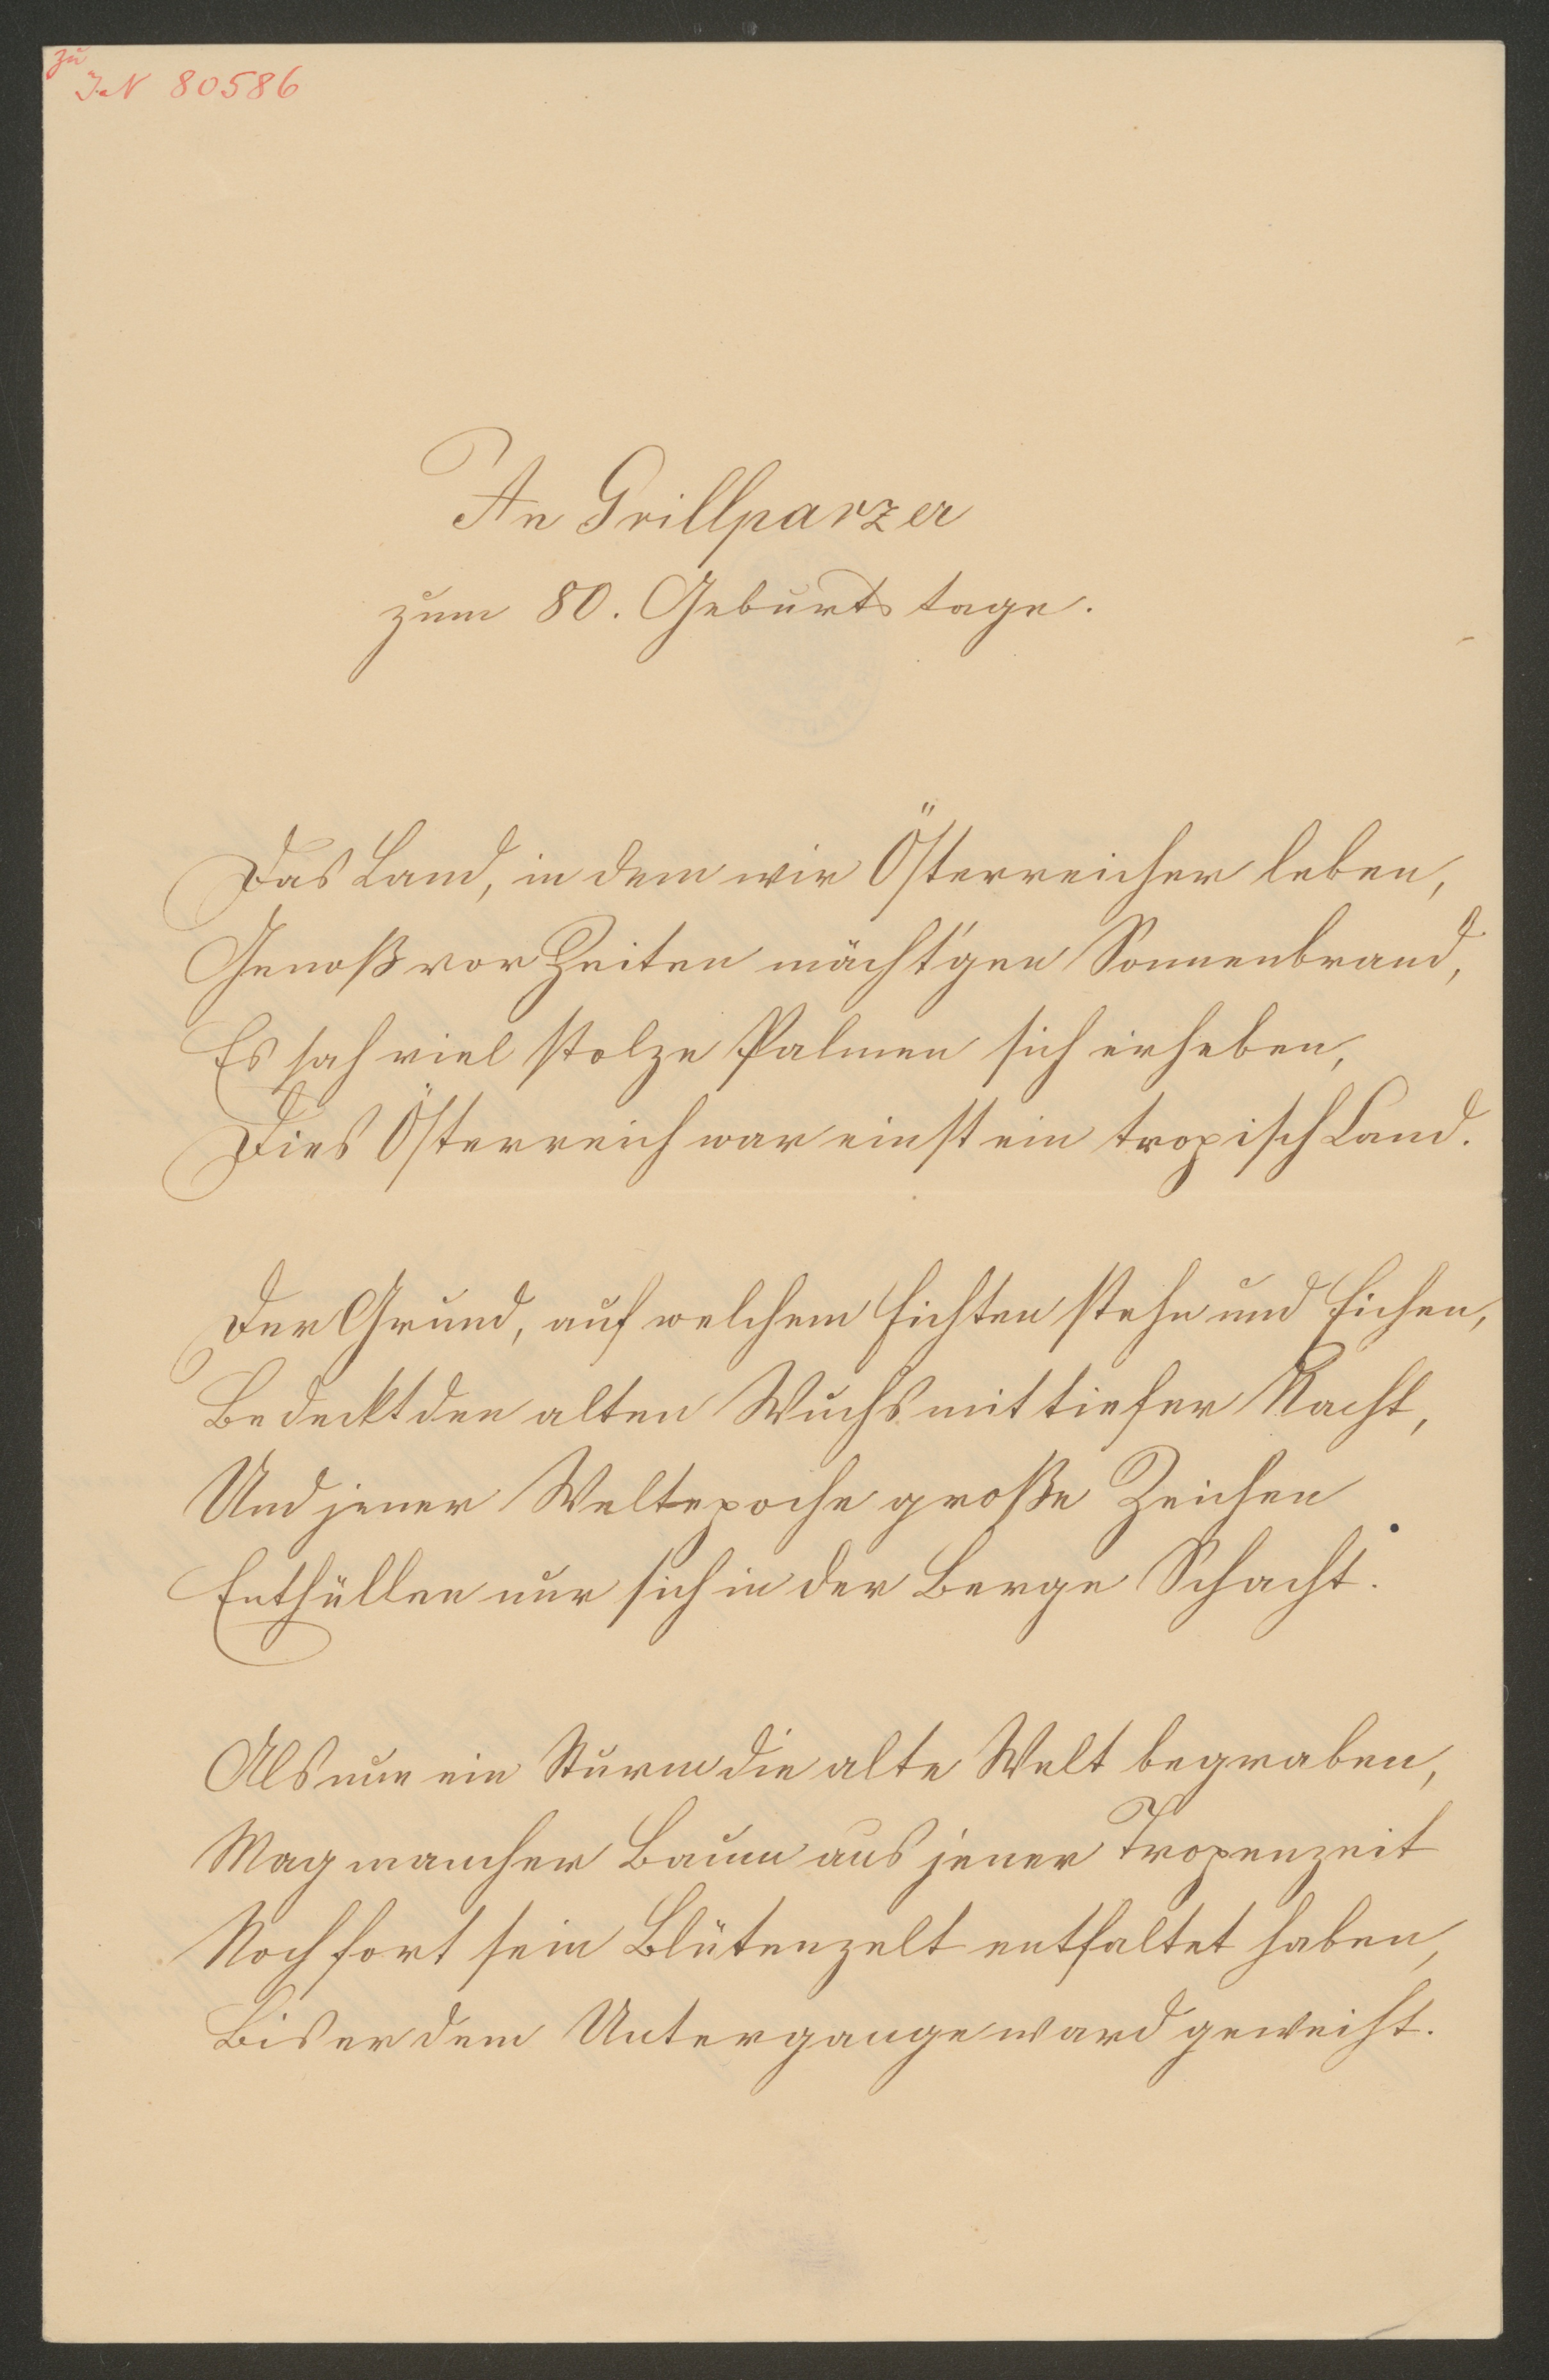 zu
I.N 80586
An Grillparzer
zum 80. Geburtstage.
Das Land, in dem wir Österreicher leben,
Genoß vor Zeiten mächt'gen Sonnenbrand,
Es sah viel stolze Palmen sich erheben,
Dies Österreich war einst ein tropisch Land.
Der Grund, auf welchem Fichten stehn und Eichen,
Bedeckt den alten Wuchs mit tiefer Nacht,
Und jener Weltepoche große Zeichen
Enthüllen nur sich in der Berge Schacht.
Als nun ein Sturm die alte Welt begraben,
Mag mancher Baum aus jener Tropenzeit
Noch fort sein Blütenzelt entfaltet haben,
Bis er dem Untergange ward geweiht.